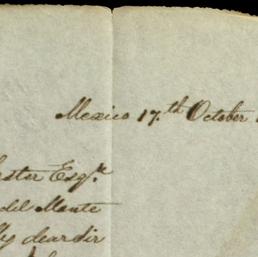 Mexico 17.th October
ester Esqre
del Monte
My dear Sir